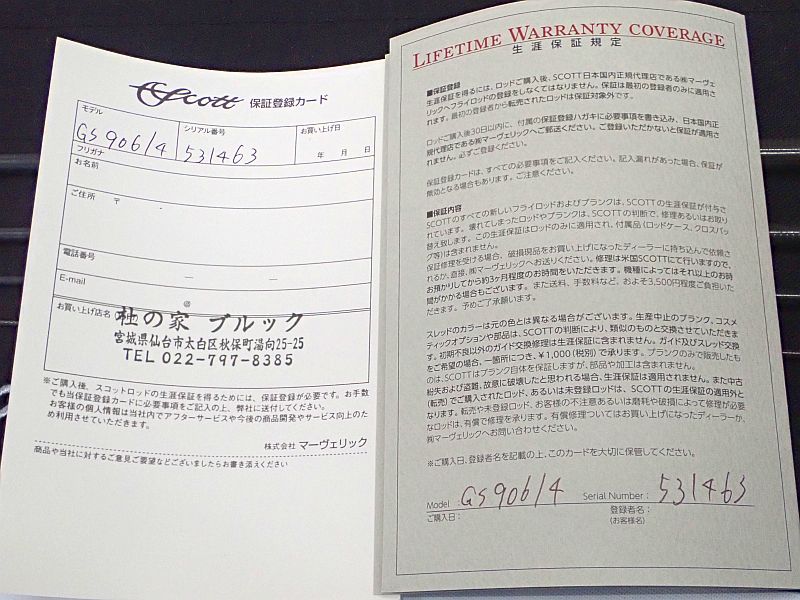 Scott 保証登録カード
モデル
シリアル番号
お買い上げ日
GS906/4
531463
年 月 日
フリガナ
お名前
ご住所 〒
電話番号
E-mail
@
お買い上げ店名
杜の家 ブルック
宮城県仙台市太白区秋保町湯向25-25
TEL 022-797-8385
※ご購入後、スコットロッドの生涯保証を得るためには、保証登録が必要です。お手数
でも当保証登録カードに必要事項をご記入の上、弊社に送付してください。
お客様の個人情報は当社内でアフターサービスや今後の商品開発やサービス向上のた
め利用させていただきます。
株式会社 マーヴェリック
商品や当社に対するご意見ご要望などございましたらお書き添えください
LIFETIME WARRANTY COVERAGE
生涯保証規定
■保証登録
生涯保証を得るには、ロッドご購入後、SCOTT日本国内正規代理店である㈱マーヴェ
リックへフライロッドの登録をしなくてはなりません。保証は最初の登録者のみに適用さ
れます。最初の登録者から転売されたロッドは保証対象外です。
ロッドご購入後30日以内に、付属の保証登録ハガキに必要事項を書き込み、日本国内正
規代理店である㈱マーヴェリックへご郵送ください。ご登録いただかないと保証が適用さ
れません。必ずご登録ください。
保証登録カードは、すべての必要事項をご記入ください。記入漏れがあった場合、保証が
無効となる場合もあります。ご注意ください。
■保証内容
SCOTTのすべての新しいフライロッドおよびブランクは、SCOTTの生涯保証が付与さ
れています。壊れてしまったロッドやブランクは、SCOTTの判断で、修理あるいはお取り
替え致します。この生涯保証はロッドのみに適用され、付属品(ロッドケース、クロスバッ
グ等)は含まれません。
保証修理を受ける場合、破損現品をお買い上げになったディーラーに持ち込んで依頼さ
れるか、直接、㈱マーヴェリックへお送りください。修理は米国SCOTTにて行いますので、
お預かりしてから約3ヶ月程度のお時間をいただきます。機種によってはそれ以上のお時
間がかかる場合もございます。また送料、手数料など、およそ3,500円程度ご負担いた
だきます。予めご了承願います。
スレッドのカラーは元の色とは異なる場合がございます。生産中止のブランク、コスメ
ティックオプションや部品は、SCOTTの判断により、類似のものと交換させていただきま
す。初期不良以外のガイド交換修理は生涯保証に含まれません。ガイド及びスレッド交換
をご希望の場合、一箇所につき、¥1,000(税別)で承ります。ブランクのみで販売したも
のは、SCOTTはブランク自体を保証しますが、部品や加工は含まれません。
また紛失および盗難、故意に破壊したと思われる場合、生涯保証は適用されません。また中古
(転売)でご購入されたロッド、あるいは未登録ロッドは、SCOTTの生涯保証の適用外と
なります。転売や未登録ロッド、お客様の不注意あるいは磨耗や破損によって修理が必要
なロッドは、有償で修理を承ります。有償修理ついてはお買い上げになったディーラーか、
㈱マーヴェリックへお問い合わせください。
※ご購入日、登録者名を記載の上、このカードを大切に保管してください。
Model : GS906/4 Serial Number : 531463
ご購入日: 登録者名:
(お客様名)